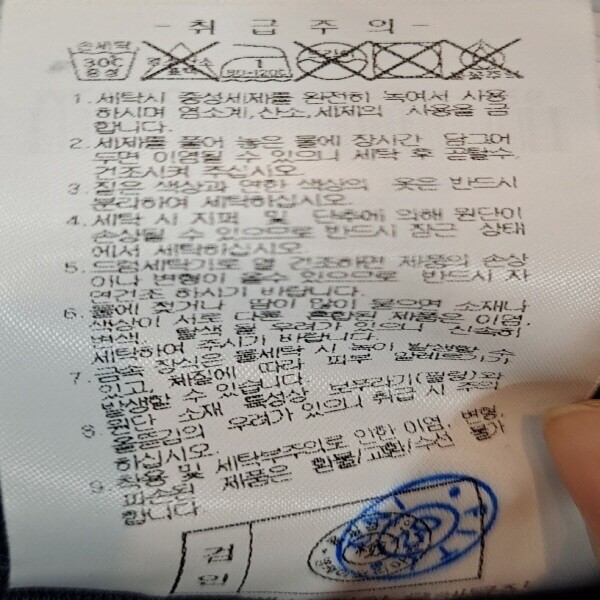 - 취 급 주 의 -
손세탁
30C
중성
1
80~120C
1. 세탁시 중성세제를 완전히 녹여서 사용
하시며 염소계,산소,세제의 사용을 금
합니다.
2. 세제를 풀어 놓은 물에 장시간 담그어
두면 이염될 수 있으니 세탁 후 곧탈수,
건조시켜 주십시오.
3. 짙은 색상과 연한 색상의 옷은 반드시
분리하여 세탁하십시오.
4. 세탁 시 지퍼 및 단추에 의해 원단이
손상될 수 있으므로 반드시 잠근 상태
에서 세탁하십시오.
5. 드럼세탁기로 열 건조하면 제품의 손상
이나 변형이 올수있으므로 반드시 자
연건조 하시기 바랍니다.
6. 물에 젖거나 땀이 많이 묻으면 소재나
색상이 서로 다른 혼합된 제품은 이염,
변색, 탈색 될 우려가 있으니 신속히
세탁하여 주시기 바랍니다.
7. 금속 장식은 물세탁 시 녹이 발생할 수
있고, 체질에 따라 피부 알레르기가
발생할 수 있습니다.
8. 소재 특성상 보푸라기(필링)와
우려가 있으니 취급 시 주의
하십시오.
9. 착용 및 세탁부주의로 인한 이염, 변형,
파손된 제품은 환불/교환/수선 불가
합니다.
검
인